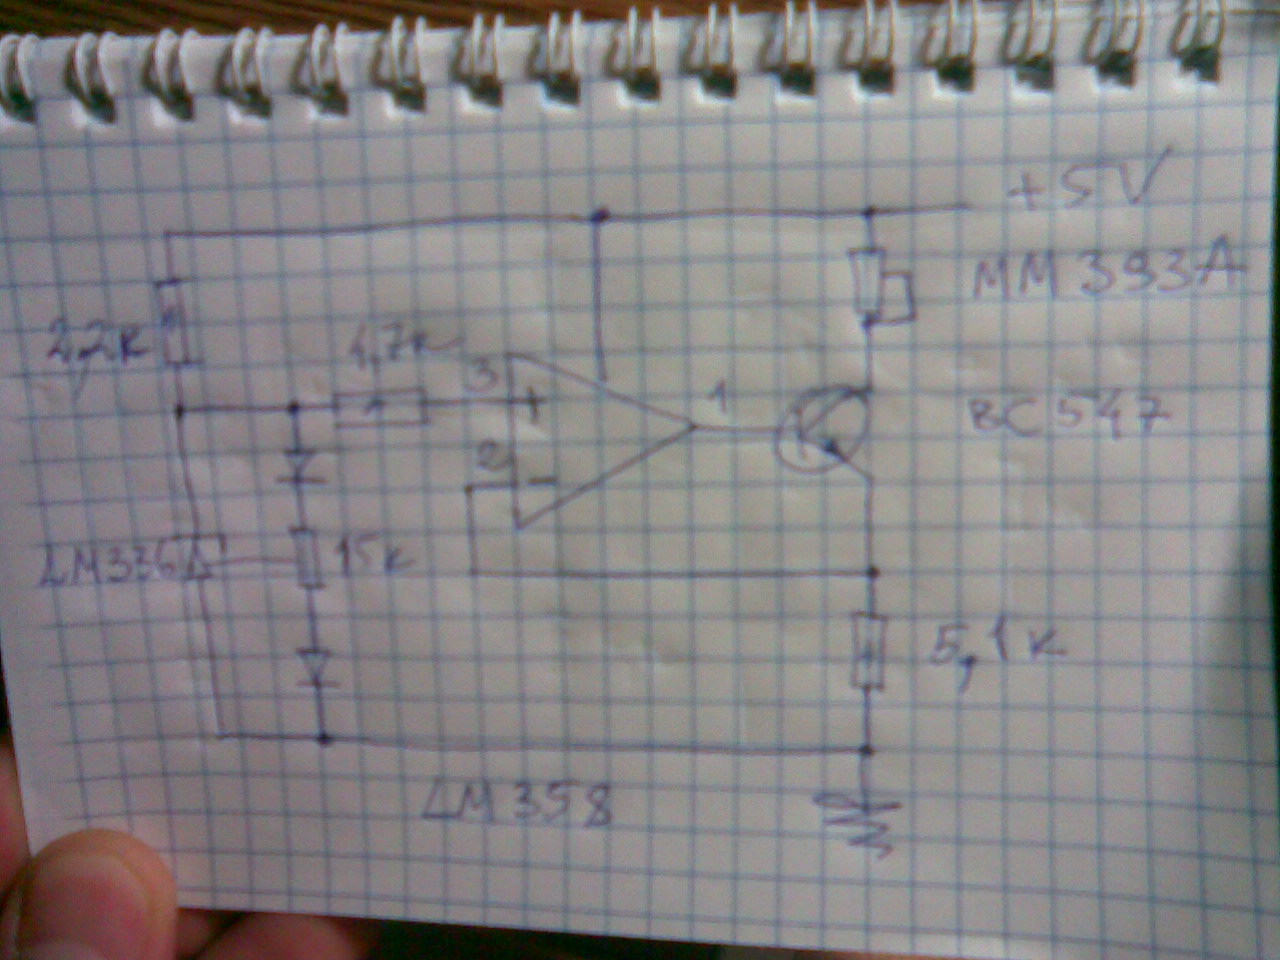 +5V
MM393A
2,2к
4,7к
3
+
1
BC547
2
−
LM336
15к
5,1к
LM358